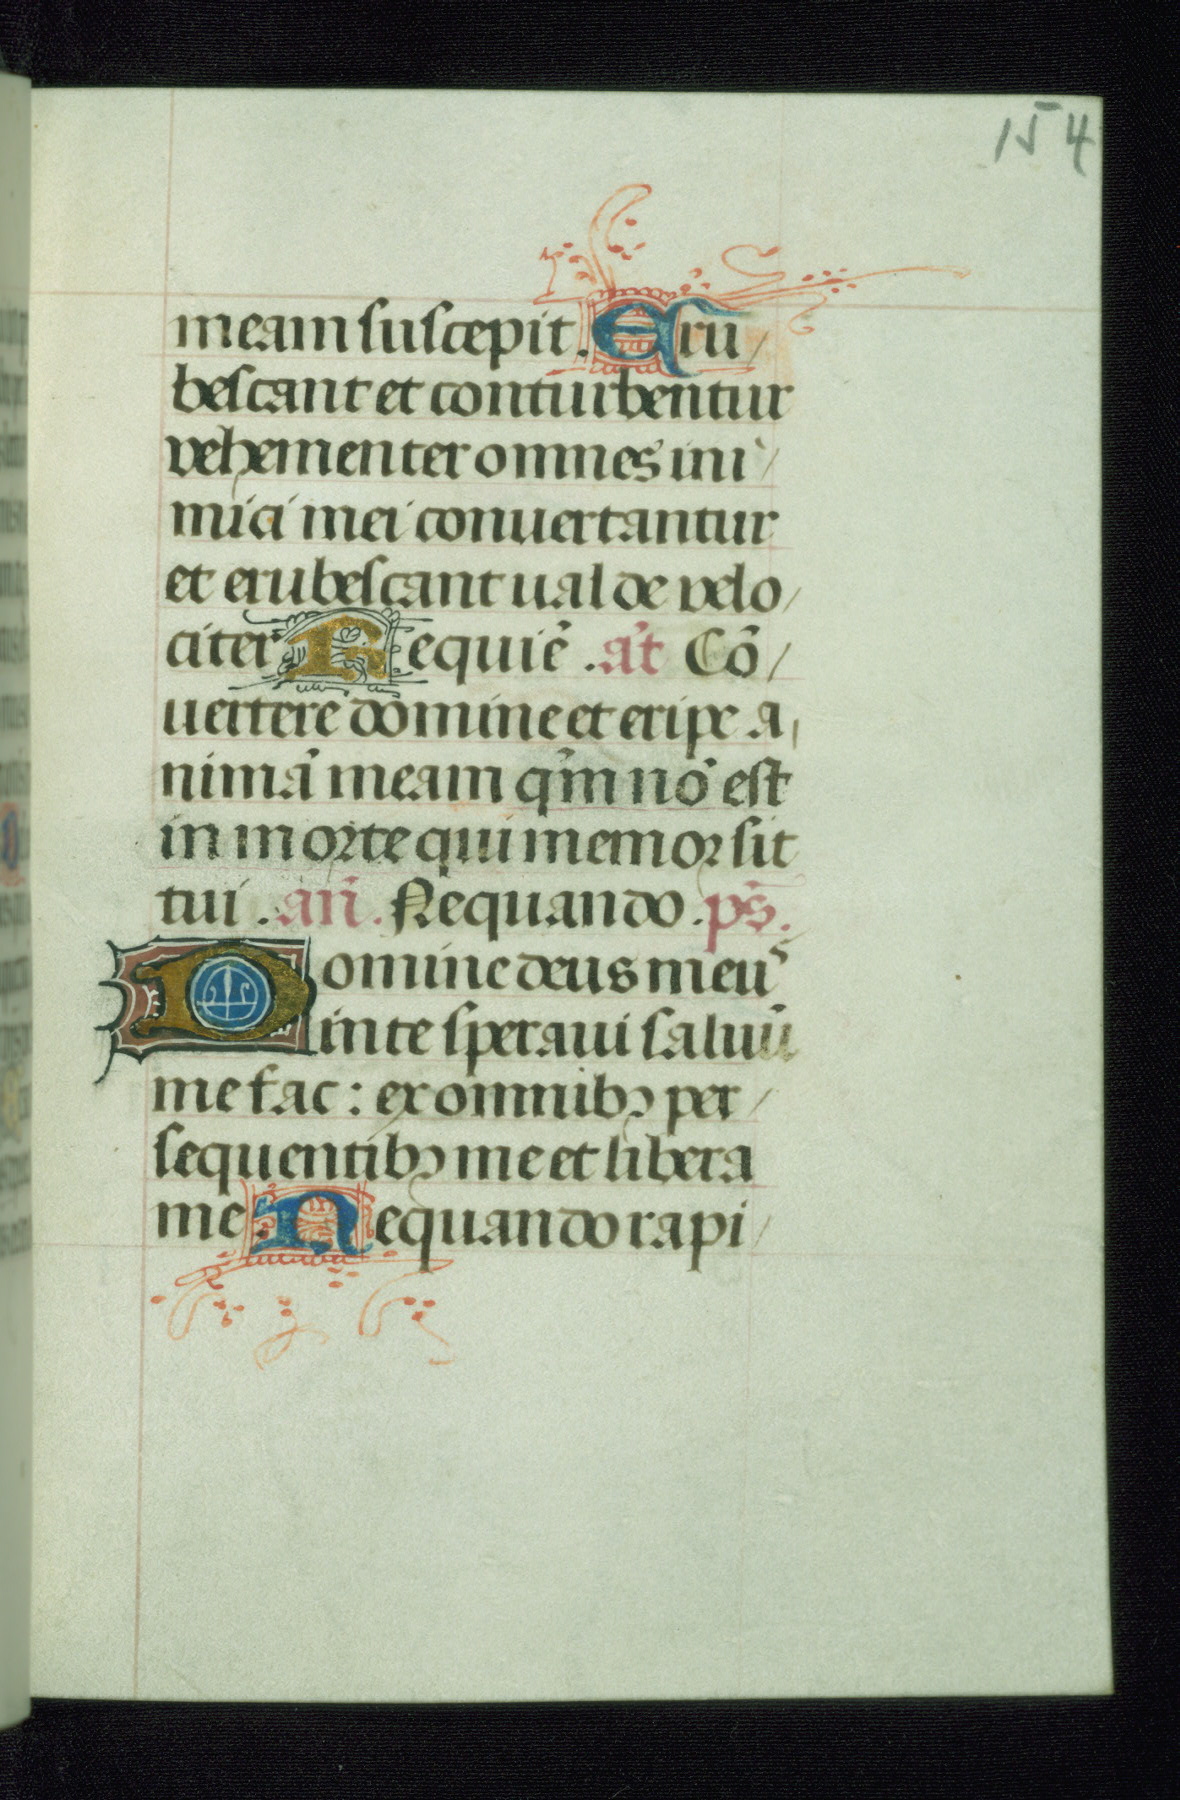 154
meam suscepit. Eru/
bescant et conturbentur
vehementer omnes ini/
mici mei conuertantur
et erubescant ualde velo/
citer Requiē. an̄t Cō/
uertere domine et eripe a/
nimā meam qm̄ nō est
in morte qui memor sit
tui. an̄. Nequando. ps̄.
Domine deus meus
in te speraui saluū
me fac: ex omnibꝫ per/
sequentibꝫ me et libera
me. Nequando rapi/